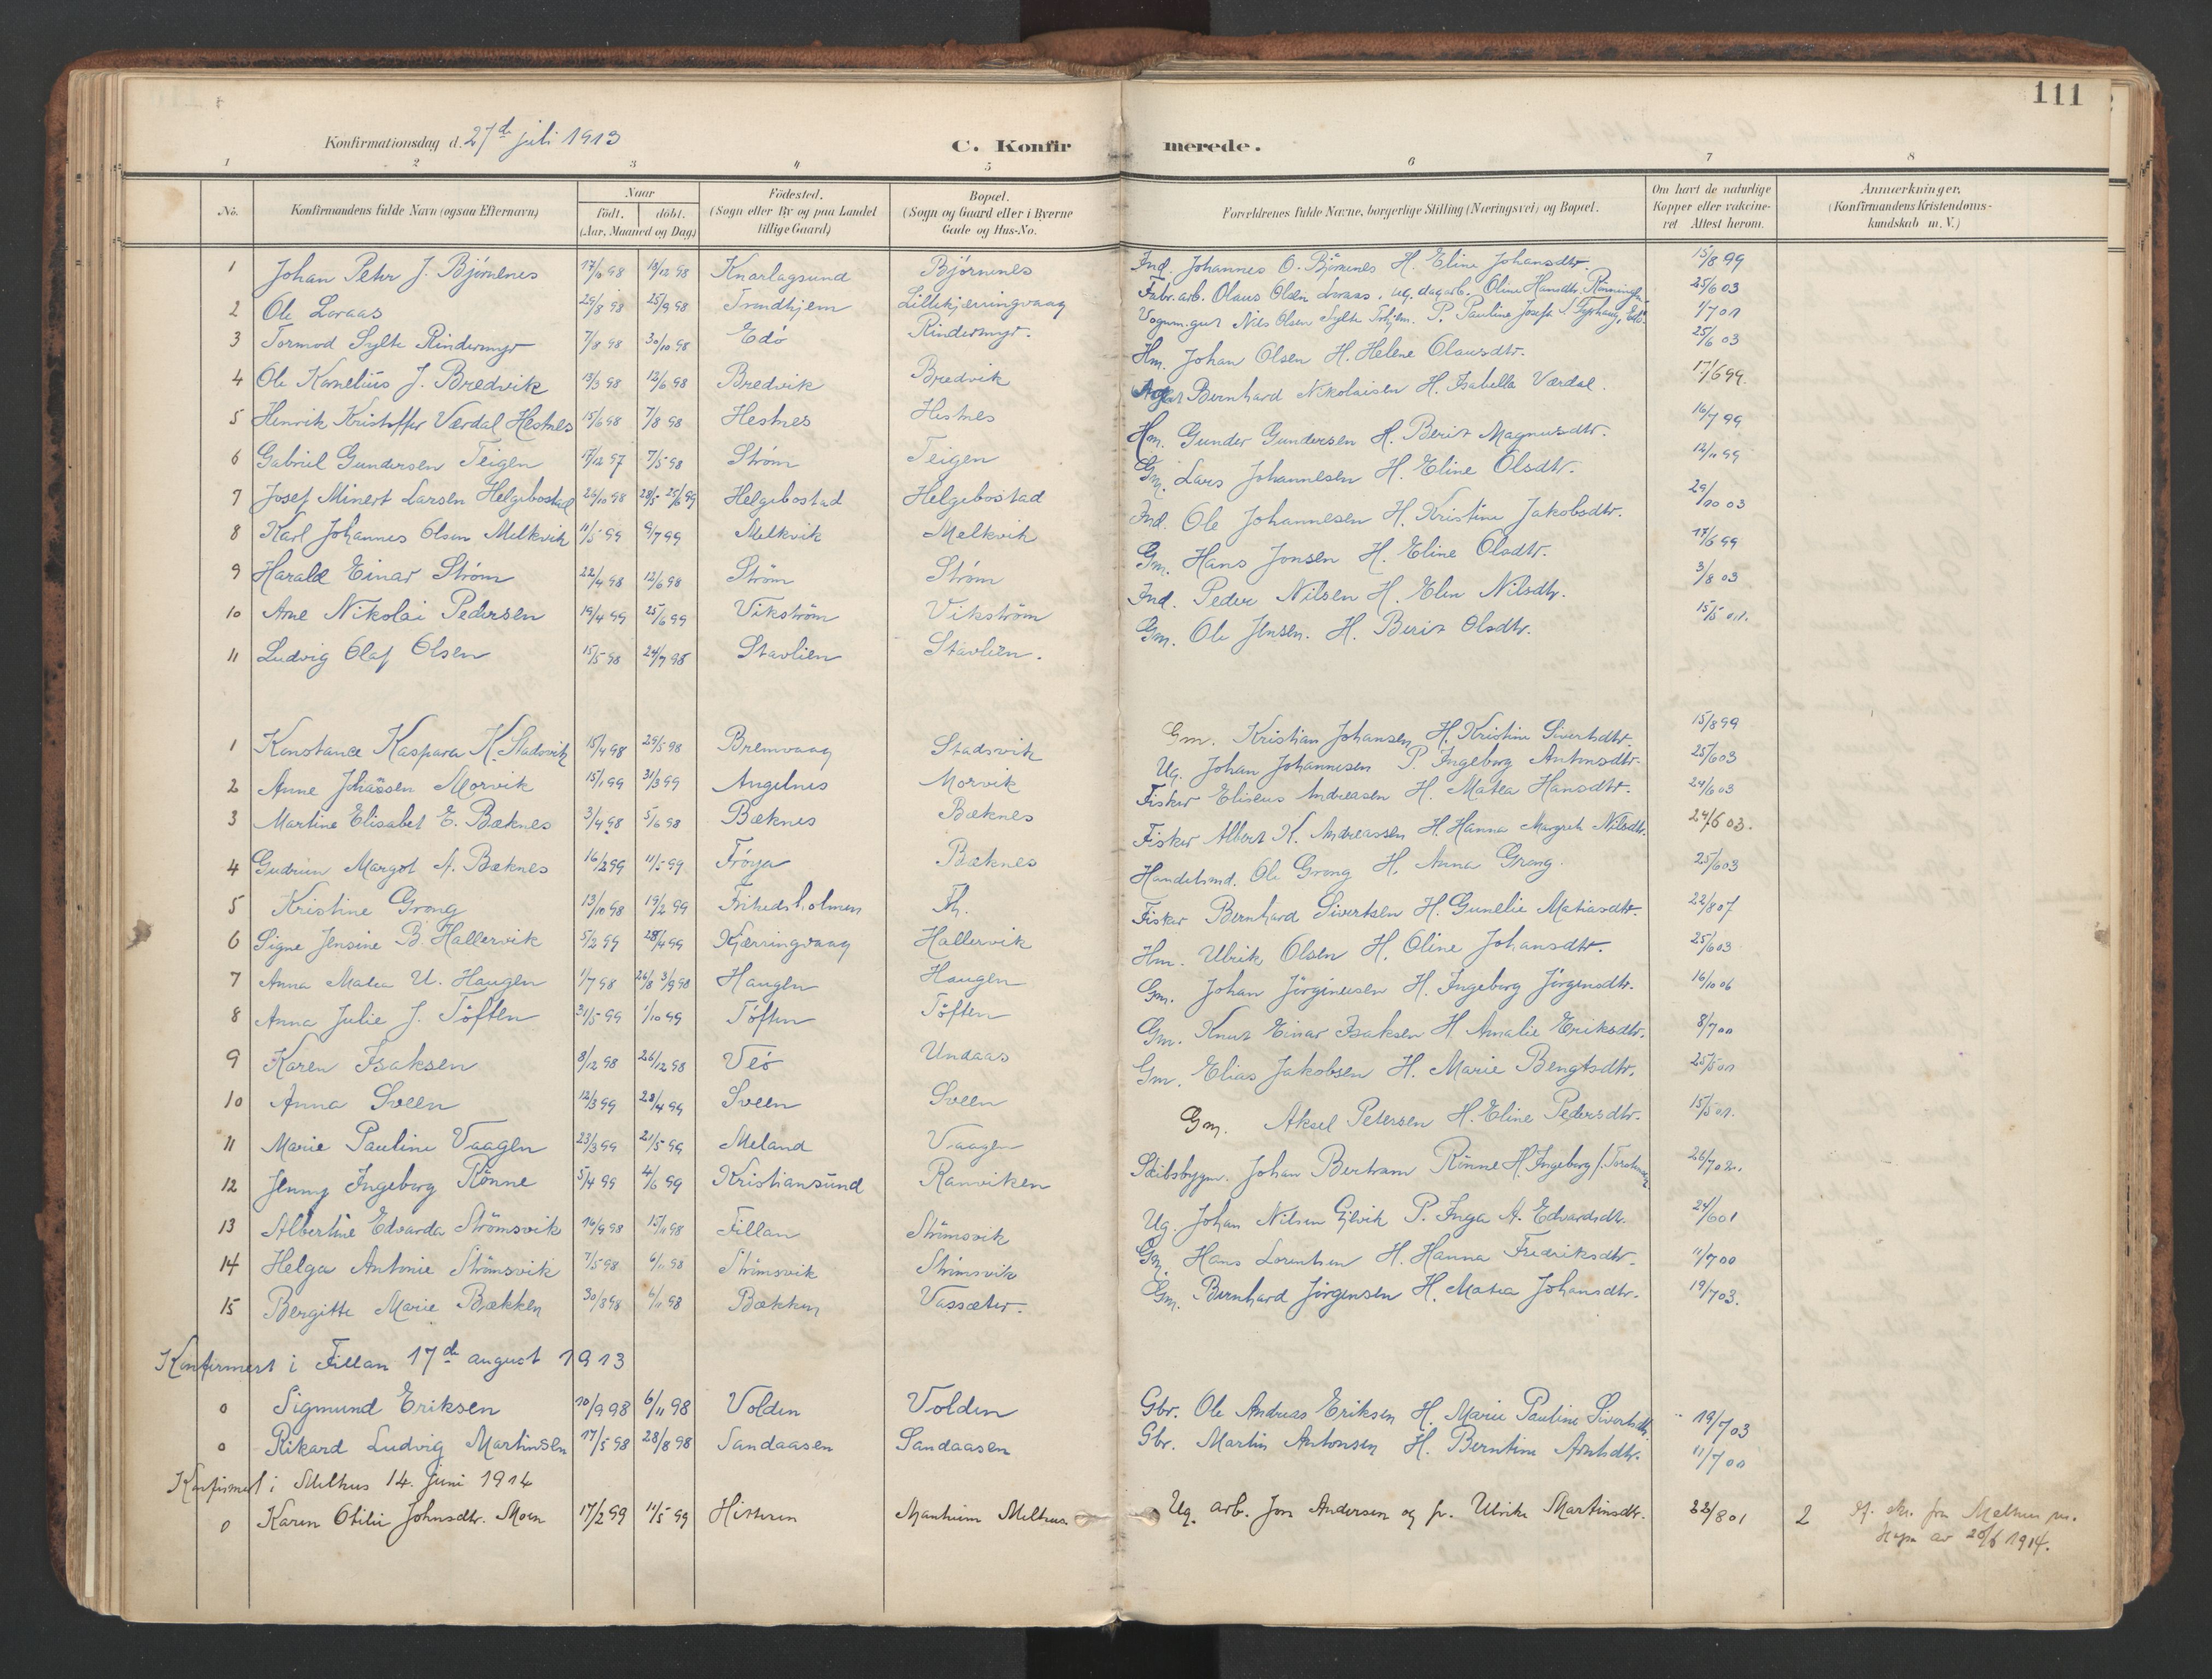 111
Konfirmationsdag d. 27de juli 1913
C. Konfirmerede.
1 2 3 4 5 6 7 8
No. Konfirmandens fulde Navn (ogsaa Efternavn) Naar født. døbt. (Aar, Maaned og Dag) Födested. (Sogn eller By og paa Landet tillige Gaard) Bopæl. (Sogn og Gaard eller i Byerne Gade og Hus-No. Forældrenes fulde Navne, borgerlige Stilling (Næringsvei) og Bopæl. Om havt de naturlige Kopper eller vakcineret Attest herom. Anmærkninger. (Konfirmandens Kristendomskundskab m. V.)
1 Johan Peter J. Bjørnenes 98 18/12 98 Knarlagsund Bjørnenes Ind. Johannes O. Bjørnenes H. Eline Johansdtr. 15/8 99
2 Ole Loraas 29/8 98 25/9 98 Trondhjem Lillekjerringvaag Fabr.arb. Olaus Olsen Loraas, ug. dagarb. Oline Hansdtr. 25/6 03
3 Tormod Sylte Rindermyr 7/8 98 30/10 98 Edø Rindermyr. Nils Olsen Sylte P. Pauline Josefs 1/7 01
4 Ole Kornelius J. Bredvik 13/3 98 12/6 98 Bredvik Bredvik Hm. Johan Olsen H. Helene Olausdtr. 25/6 03
5 Henrik Kristoffer Værdal Hestnes 15/6 98 7/8 98 Hestnes Hestnes Bernhard Nikolaisen H. Isabella Værdal. 17/6 99.
6 Gabriel Gundersen Teigen 17/12 97 7/5 98 Strøm Teigen Hm. Gunder Gundersen H. Berit Magnusdtr. 16/7 99
7 Josef Minert Larsen Helgebostad 26/10 98 28/5 - 25/6 99 Helgebostad Helgebostad Gm. Lars Johannesen H. Eline Olsdtr. 12/11 99
8 Karl Johannes Olsen Melkvik 11/5 99 9/7 99 Melkvik Melkvik Ind. Ole Johannesen H. Kristine Jakobsdtr. 29/10 03
9 Harald Einar Strøm 22/4 98 12/6 98 Strøm Strøm Gm. Hans Jonsen H. Eline Olsdtr. 17/6 99
10 Arne Nikolai Pedersen 19/4 99 25/6 99 Vikstrøm Vikstrøm Ind. Peder Nilsen H. Elen Nilsdtr. 3/8 03
11 Ludvig Olaf Olsen 15/5 98 24/7 98 Stavlien Stavlien. Gm. Ole Jensen. H. Berit Olsdtr. 15/5 01.
1 Konstance Kaspara K. Stadsvik 15/4 98 29/5 98 Bremvaag Stadsvik Gm. Kristian Johansen H. Kristine Sivertsdtr. 15/8 99
2 Anne Johansen Morvik 15/1 99 31/3 99 Angelnes Morvik Ug. Johan Johannesen P. Ingeborg Antonsdtr. 25/6 03
3 Martine Elisabet E. Bæknes 3/4 98 5/6 98 Bæknes Bæknes Fisker Eliseus Andreasen H. Matea Hansdtr. 24/6 03
4 Gudrun Margot A. Bæknes 16/2 99 11/5 99 Frøya Bæknes Fisker Albert K. Andreassen H. Hanna Margrete Nilsdtr. 24/6 03.
5 Kristine Grong 13/10 98 19/2 99 Frihedsholmen Fh. Handelsmd. Ole Grong H. Anna Grong. 25/6 03
6 Signe Jensine B. Hallervik 5/2 99 28/4 99 Kjerringvaag Hallervik Fisker Bernhard Sivertsen H. Gunelie Matiasdtr. 22/8 07
7 Anna Matea U. Haugen 1/7 98 26/8 3/9 98 Haugen Haugen Hm. Ulrik Olsen H. Oline Johansdtr. 25/6 03
8 Anna Julie J. Tøften 31/5 99 1/10 99 Tøften Tøften Gm. Johan Jörginusen H. Ingeborg Jörgensdtr. 16/10 06
9 Karen Isaksen 8/12 98 26/12 98 Veø Undaas Gm. Knut Einar Isaksen H. Amalie Eriksdtr. 8/7 00
10 Anna Sveen 12/3 99 23/4 99 Sveen Sveen Gm. Elias Jakobsen H. Marie Bengtsdtr. 25/5 01
11 Marie Pauline Vaagen 23/3 99 21/5 99 Meland Vaagen Gm. Aksel Petersen H. Eline Pedersdtr. 15/5 01.
12 Jenny Ingeborg Rønne 5/4 99 4/6 99 Kristiansund Ramviken Skibsbygm. Johan Bertram Rønne H. Ingeborg 26/7 02.
13 Albertine Edvarda Strömsvik 16/9 98 15/11 98 Fillan Strömsvik Ug. Johan Nilsen Gjevik P. Inga A. Edvardsdtr. 24/6 01
14 Helga Antonie Strömsvik 7/5 98 6/11 98 Strömsvik Strömsvik Gm. Hans Lorentsen H. Hanna Fredriksdtr. 11/7 00
15 Bergitte Marie Bækken 30/8 98 6/11 98 Bækken Vassæter. Gm. Bernhard Jörgensen H. Matea Johansdtr. 19/7 03.
Konfirmert i Fillan 17de august 1913
0 Sigmund Eriksen 10/9 98 6/11 98 Volden Volden Gbr. Ole Andreas Eriksen H. Marie Pauline Sivertsdtr. 19/7 03
0 Rikard Ludvig Martinsen 17/5 98 28/8 98 Sandaasen Sandaasen Gbr. Martin Antonsen H. Berntine Arntsdtr. 11/7 00
Konfirmert i Melhus 14. juni 1914
0 Karen Otilie Johnsdtr. Moen 17/2 99 11/5 99 Hitteren Melhus Ug. arb. Jon Andersen og p. Ulrike Martinsdtr. 22/8 01 2 fra Melhus av 20/6 1914.